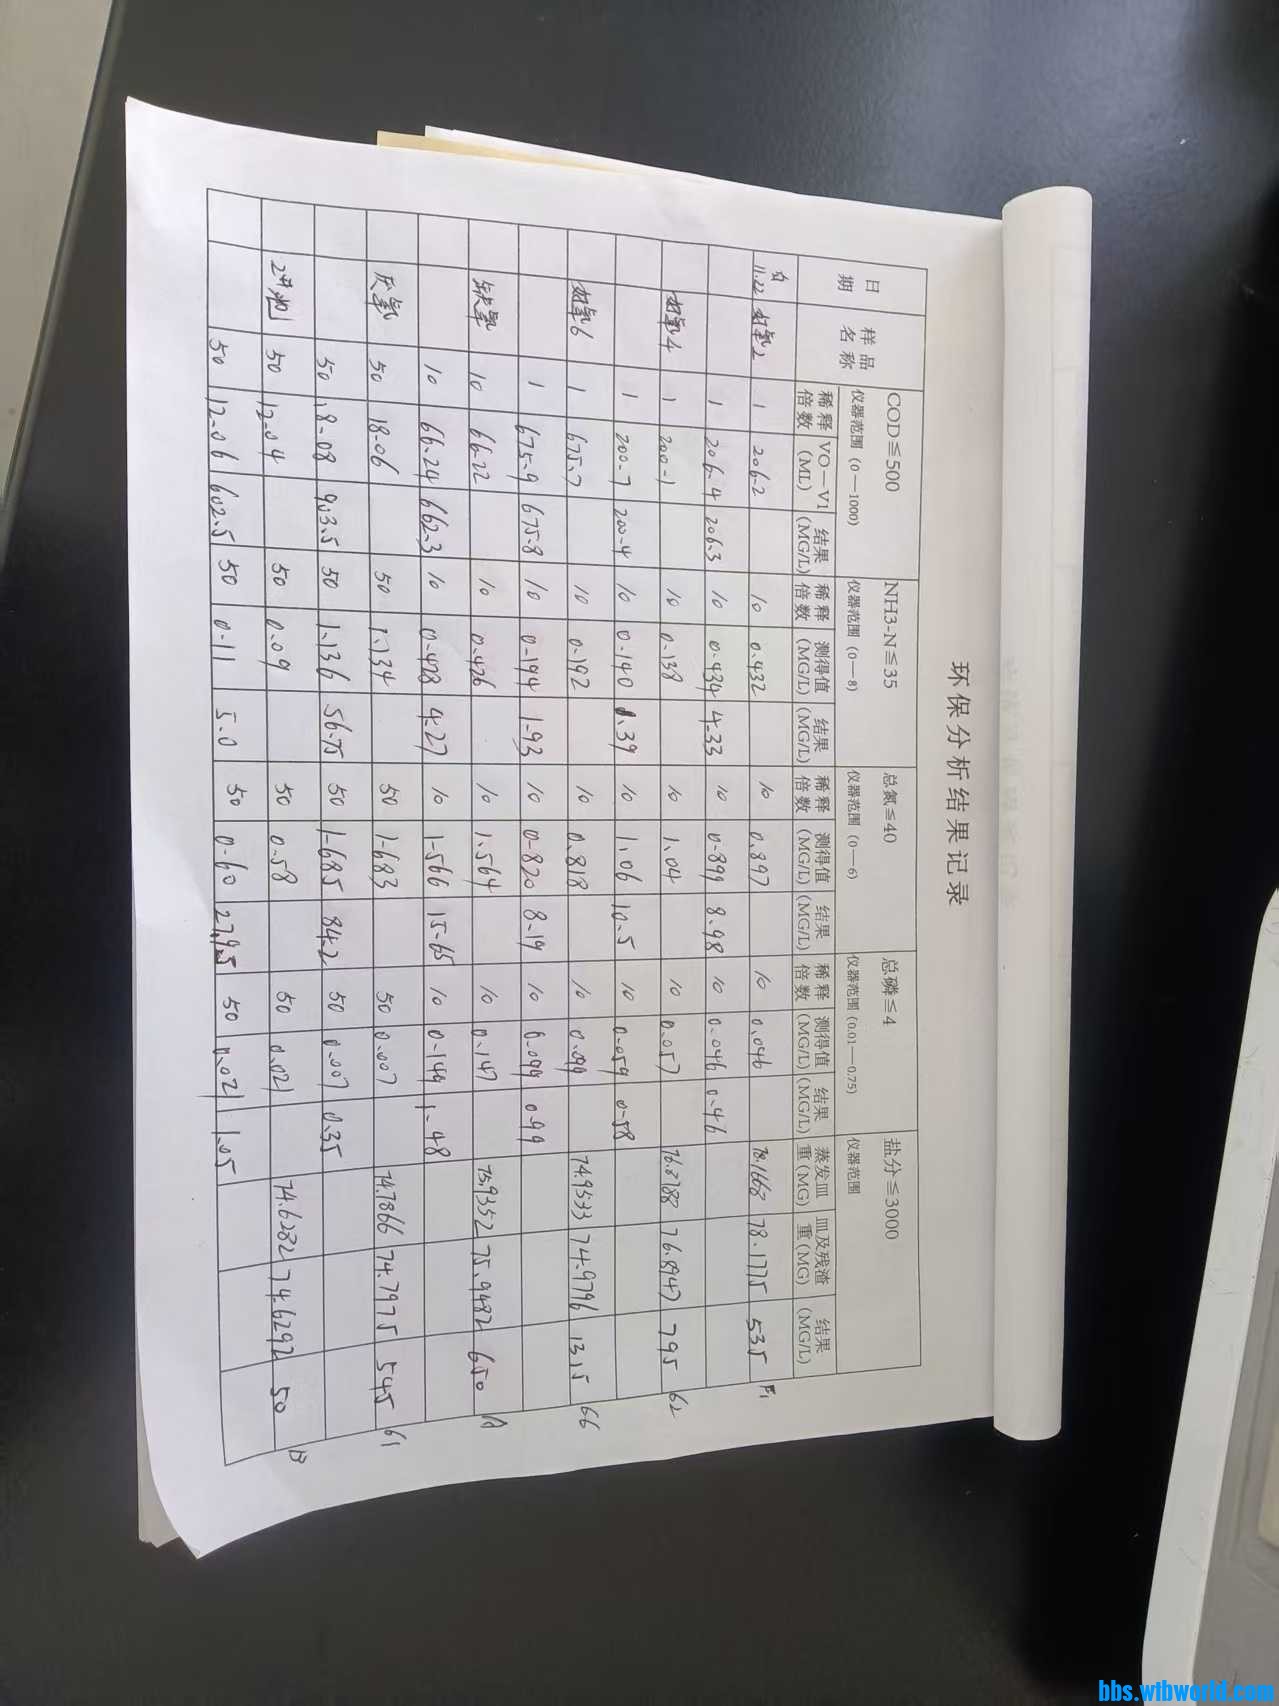 环保分析结果记录
日期 样品名称 COD≦500 NH3-N≦35 总氮≦40 总磷≦4 盐分≦3000
仪器范围（0—1000） 仪器范围（0—8） 仪器范围（0—6） 仪器范围（0.01—0.75） 仪器范围
稀释倍数 VO—V1(ML) 结果(MG/L) 稀释倍数 测得值(MG/L) 结果(MG/L) 稀释倍数 测得值(MG/L) 结果(MG/L) 稀释倍数 测得值(MG/L) 结果(MG/L) 蒸发皿重(MG) 皿及残渣重(MG) 结果(MG/L)
11.22 好氧2 1 206.2 10 0.432 10 0.897 10 0.046 78.1668 78.1775 535
1 206.4 206.3 10 0.434 4.33 10 0.899 8.98 10 0.046 0.46
好氧4 1 200.1 10 0.138 10 1.04 10 0.057 76.8788 76.8947 795 62
1 200.7 200.4 10 0.140 1.39 10 1.06 10.5 10 0.059 0.58
好氧6 1 675.7 10 0.192 10 0.818 10 0.099 74.9533 74.9796 1315 66
1 675.9 675.8 10 0.194 1.93 10 0.820 8.19 10 0.099 0.99
缺氧 10 66.22 10 0.426 10 1.564 10 0.147 75.9352 75.9482 650 A
10 66.24 662.3 10 0.428 4.27 10 1.566 15.65 10 0.149 1.48
厌氧 50 18.06 50 1.134 50 1.683 50 0.007 74.7866 74.7975 545 61
50 18.08 903.5 50 1.136 56.75 50 1.685 84.2 50 0.007 0.35
2#池 50 12.04 50 0.09 50 0.58 50 0.021 74.6282 74.6292 50 B
50 12.06 602.5 50 0.11 5.0 50 0.60 27.95 50 0.021 1.05
bbs.wtbworld.com